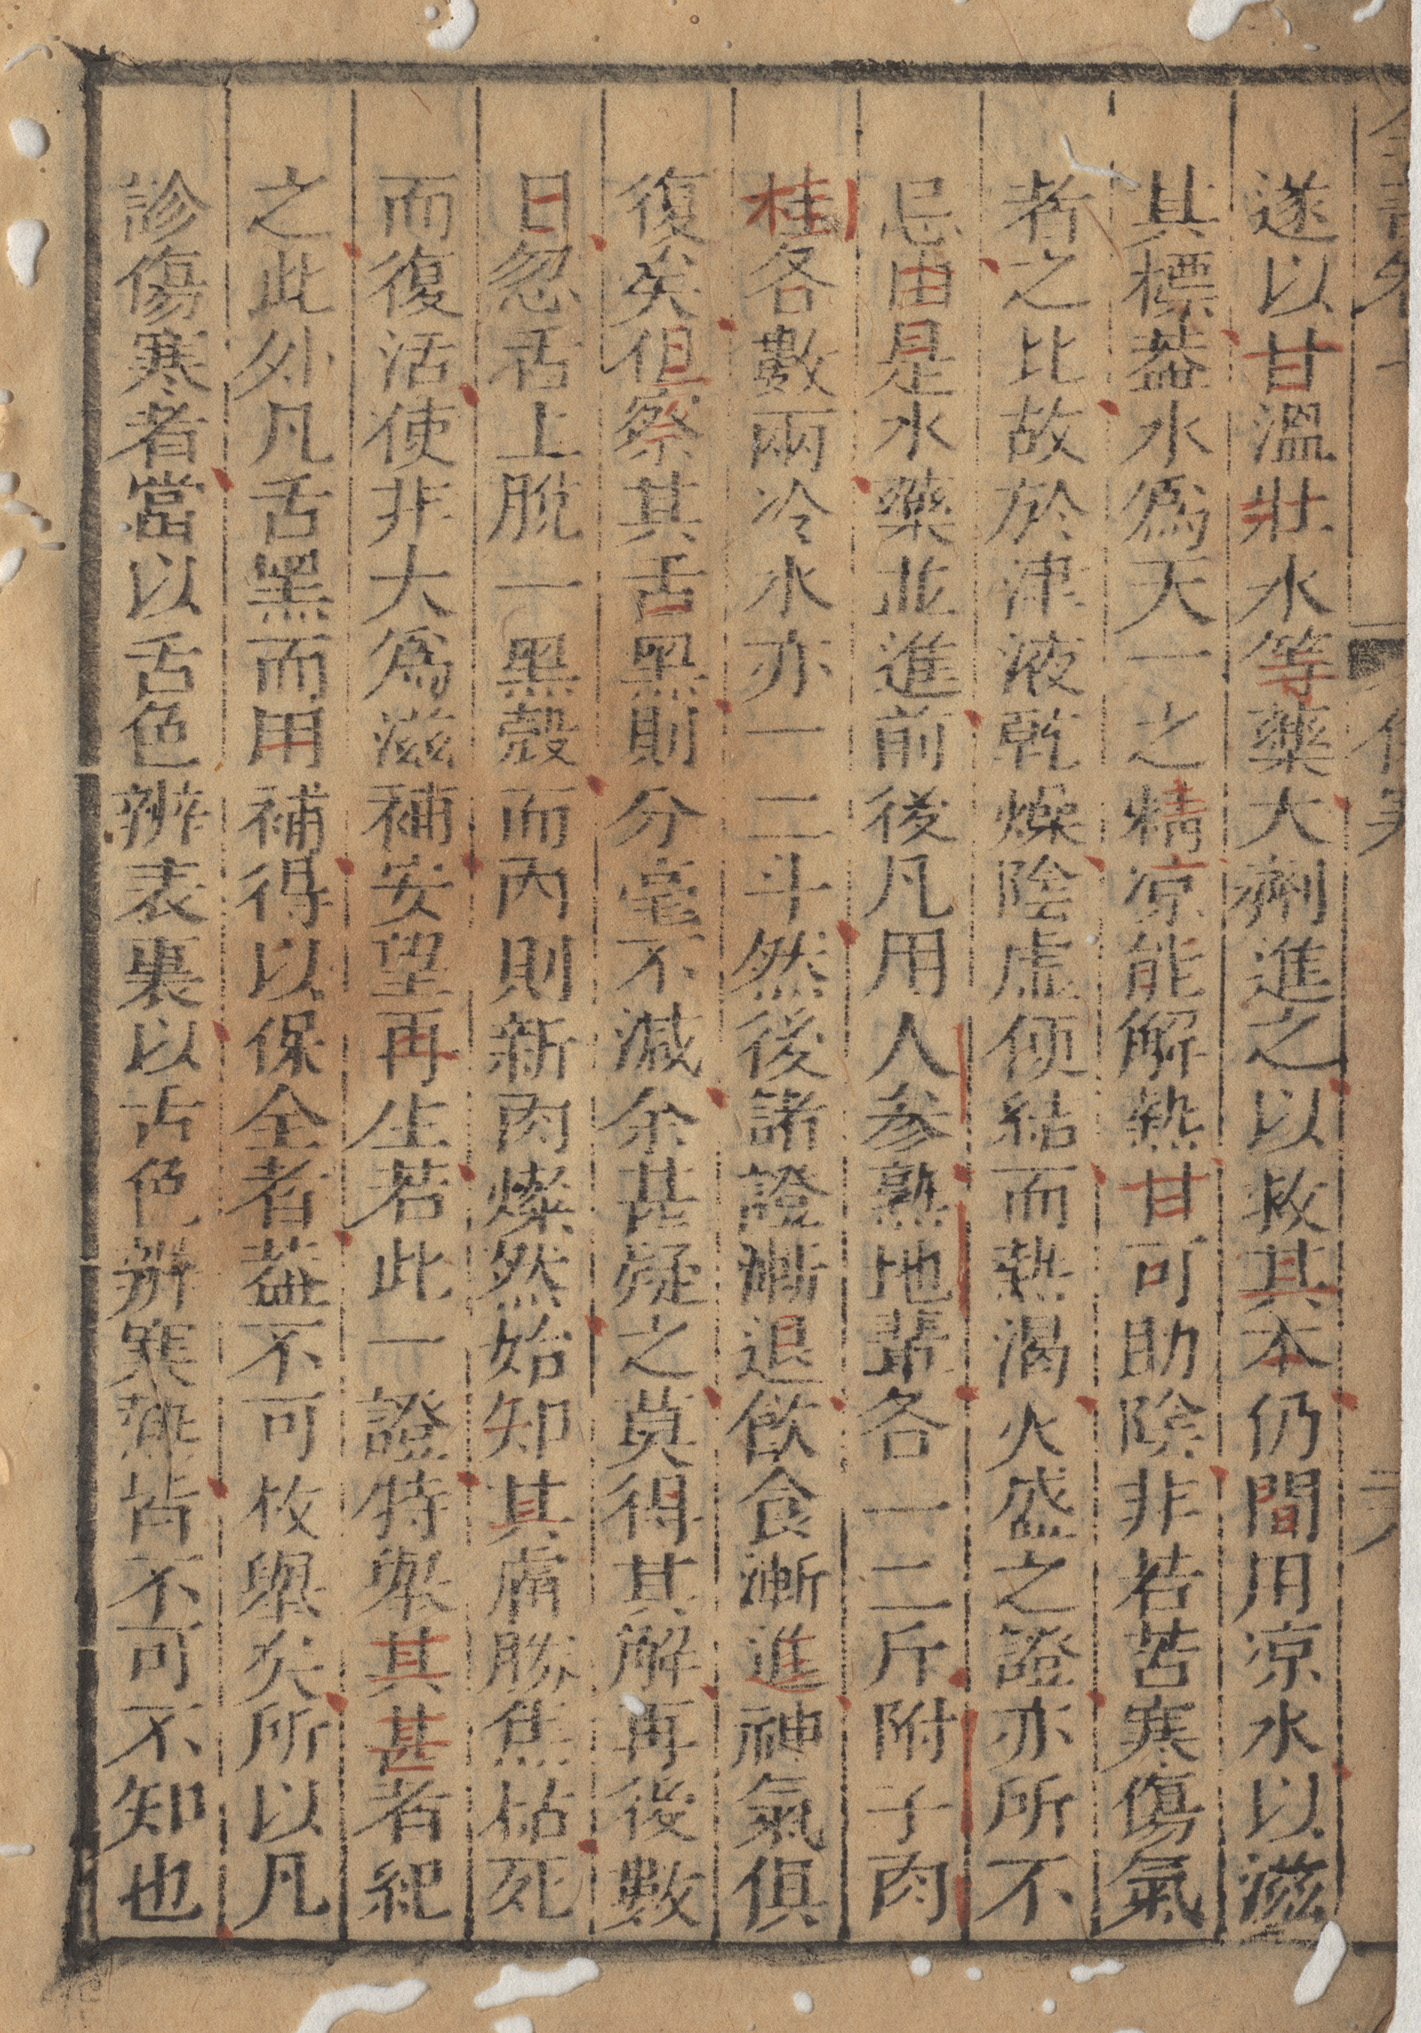 遂以甘溫壯水等藥大劑進之以救其本仍間用凉水以滋
其標葢水爲天一之精凉能解熱甘可助陰非若苦寒傷氣
者之比故於津液乾燥陰虛便結而熱渴火盛之證亦所不
忌由是水藥並進前後凡用人參熟地輩各一二斤附子肉
桂各數兩冷水亦一二斗然後諸證漸退飲食漸進神氣俱
復矣但察其舌黑則分毫不減余甚疑之莫得其解再後數
日忽舌上脫一黑殼而內則新肉燦然始知其膚腠焦枯死
而復活使非大爲滋補安望再生若此一證特舉其甚者紀
之此外凡舌黑而用補得以保全者葢不可枚舉矣所以凡
診傷寒者當以舌色辨表裏以舌色辨寒熱皆不可不知也